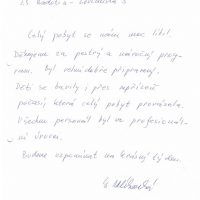 Celý pobyt se nám moc líbil.
Děkujeme za pestrý a náročný prog-
ram. Byl velmi dobře připravený.
Děti se bavily i přes nepříznivé
počasí, které celý pobyt provázelo.
Všechen personál byl na profesionál-
ní úrovni.
Budeme vzpomínat na krásný týden.